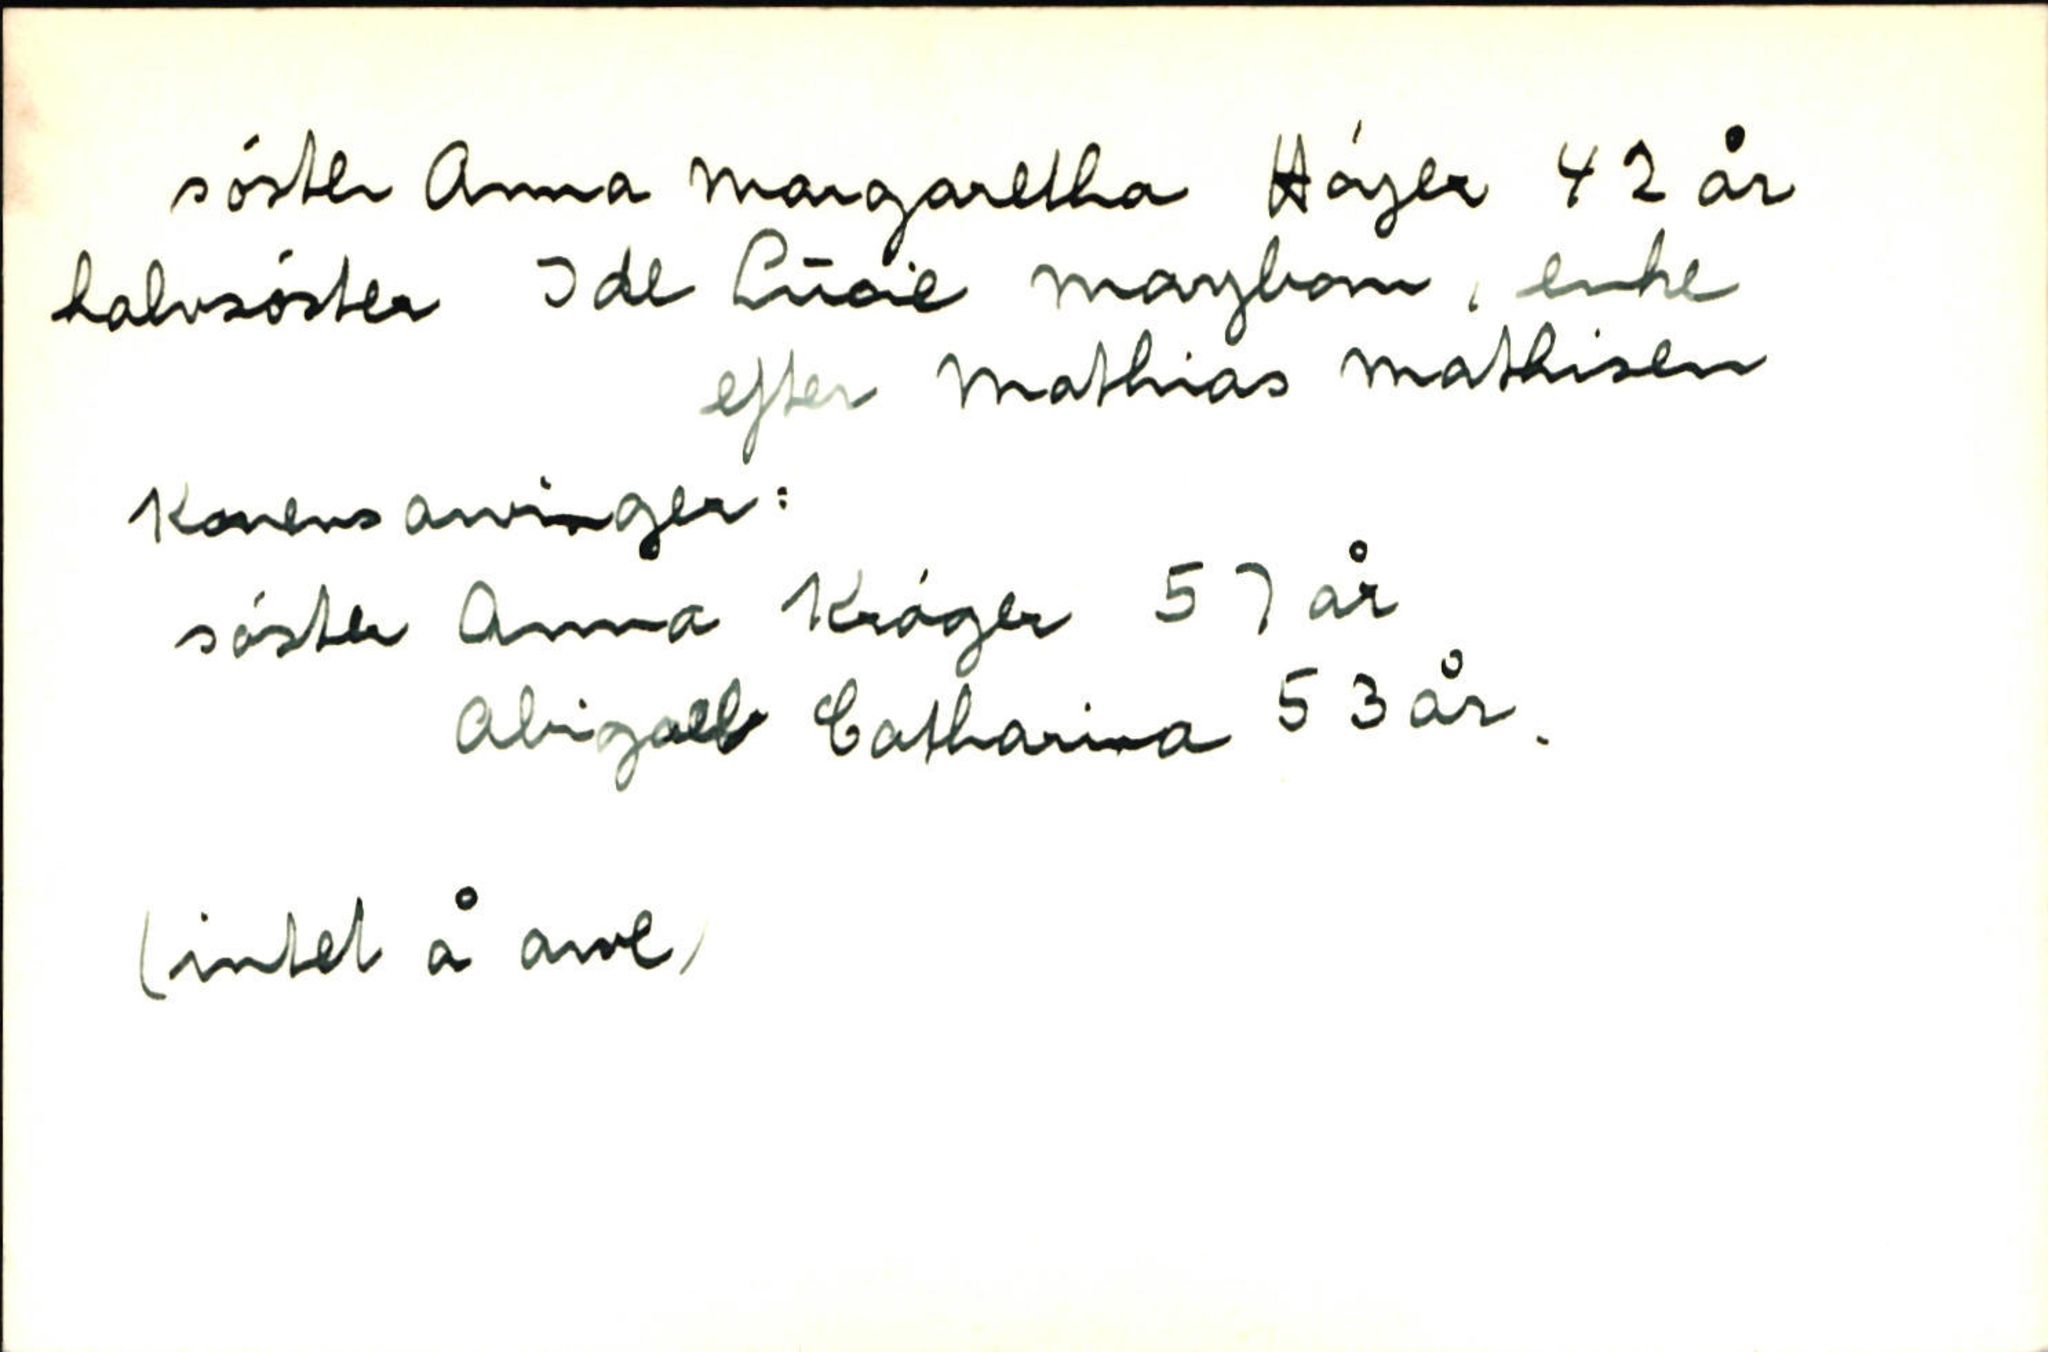 söster Anna Margaretha Höyer 42 år
halvsöster Ide Lucie Maybom, enke
efter Mathias Mathisen
Konens arvinger:
söster Anna Kröger 57 år
Abigael Catharina 53 år.
(intet å arve)